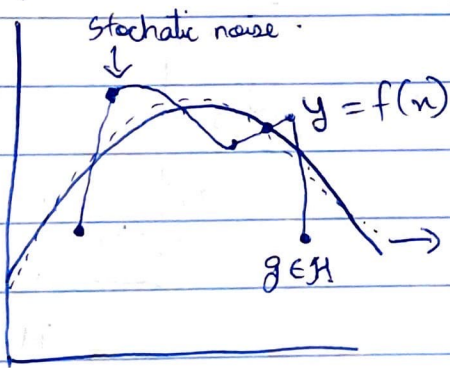 Stochatic noise.
y = f(x)
g ∈ H